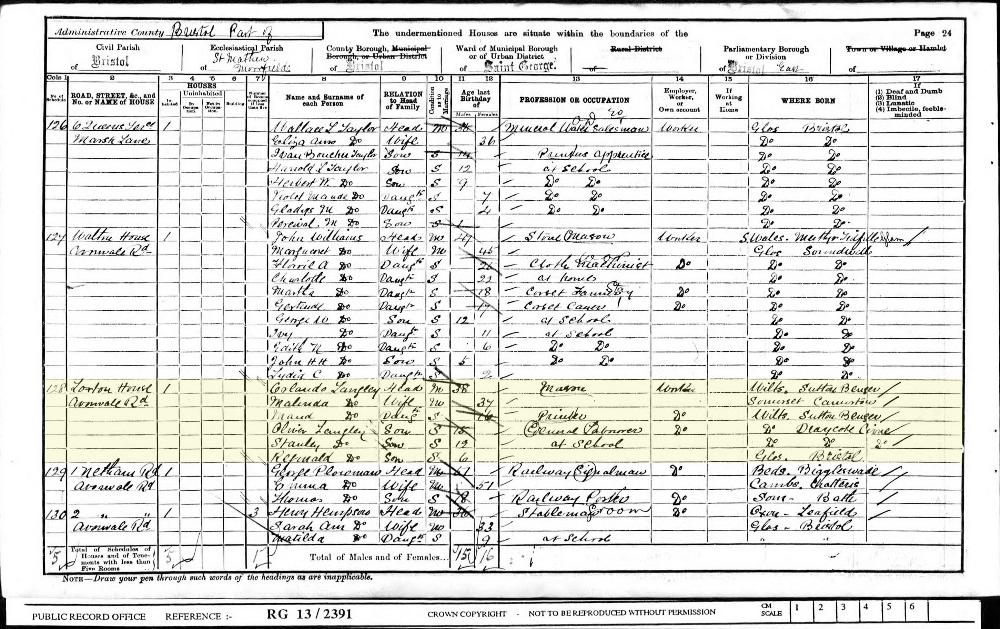 Administrative County Bristol Part of
The undermentioned Houses are situate within the boundaries of the
Page 24
Civil Parish of Bristol
Ecclesiastical Parish of St Mathew Moorfields
County Borough, Municipal Borough, or Urban District of Bristol
Ward of Municipal Borough or of Urban District of Saint George
Rural District of
Parliamentary Borough or Division of Bristol East
Town or Village or Hamlet of
Cols 1 2 3 4 5 6 7 8 9 10 11 12 13 14 15 16 17
No. of Schedule
ROAD, STREET, &c., and No. or NAME of HOUSE
HOUSES
Inhabited
Uninhabited
In Occupation
Not in Occupation
Building
Name and Surname of each Person
RELATION to Head of Family
Condition as to Marriage
Age last Birthday of
Males Females
PROFESSION OR OCCUPATION
Employer, Worker, or Own account
If Working at Home
WHERE BORN
(1) Deaf and Dumb
(2) Blind
(3) Lunatic
(4) Imbecile, feeble-minded
126 1 Wallace L Taylor Head M 38 Mineral Water Salesman Worker Glos Bristol
Marsh Lane Eliza Ann Do Wife 36 Do Do
Taylor Son S 14 apprentice Do Do
Harold L Taylor Son S 12 at School Do Do
Herbert W. Do Son S 9 Do Do Do Do
Violet Maude Do Daugtr S 7 Do Do Do Do
Gladys M Do Daugtr S 4 Do Do Do Do
Percival M Do Son S 1 Do Do
127 Walton House 1 John Williams Head M 47 Stone Mason Worker S Wales
Avonvale Rd Margaret Do Wife M 45 Glos
A Do Daugtr S Cloth Machinist Do Do Do
Charlotte Do Daugtr S 22 at home Do Do
Martha Do Daugtr S 18 Corset Do Do Do
Gertrude Do Daugtr S 17 Corset Do Do Do
George W Do Son S 12 at School Do Do
Ivy Do Daugtr S 11 at School Do Do
Edith M Do Daugtr S 6 Do Do Do Do
John H H Do Son S 5 Do Do Do Do
Lydia C Do Daugtr S 2 Do Do
128 House 1 Orlando Langley Head M 38 Mason Worker Wilts. Sutton Benger
Avonvale Rd Malinda Do Wife M 37 Somerset Camerton
Maud Do Daugtr S 16 Printer Do Wilts. Sutton Benger
Oliver Langley Son S 15 General Labourer Do Do Draycote Cerne
Stanley Do Son S 12 at School Do Do Do
Reginald Do Son S 6 Glos. Bristol
129 1 Netham Rd 1 George Head M 51 Railway Signalman Do Beds. Biggleswade
Avonvale Rd Emma Do Wife M 51 Cambs. Chatteris
Thomas Do Son S 18 Railway Porter Do Som - Bath
130 2 " " 1 3 Henry Hempson Head M 36 Stableman Groom Do Oxon - Leafield
Avonvale Rd Sarah Ann Do Wife M 33 Glos - Bristol
Matilda Do Daugtr S 9 at School " "
5 Total of Schedules of Houses and of Tenements with less than Five Rooms 5
Total of Males and of Females... 15 16
NOTE—Draw your pen through such words of the headings as are inapplicable.
PUBLIC RECORD OFFICE REFERENCE :- RG 13/2391 CROWN COPYRIGHT - NOT TO BE REPRODUCED WITHOUT PERMISSION
CM SCALE 1 2 3 4 5 6